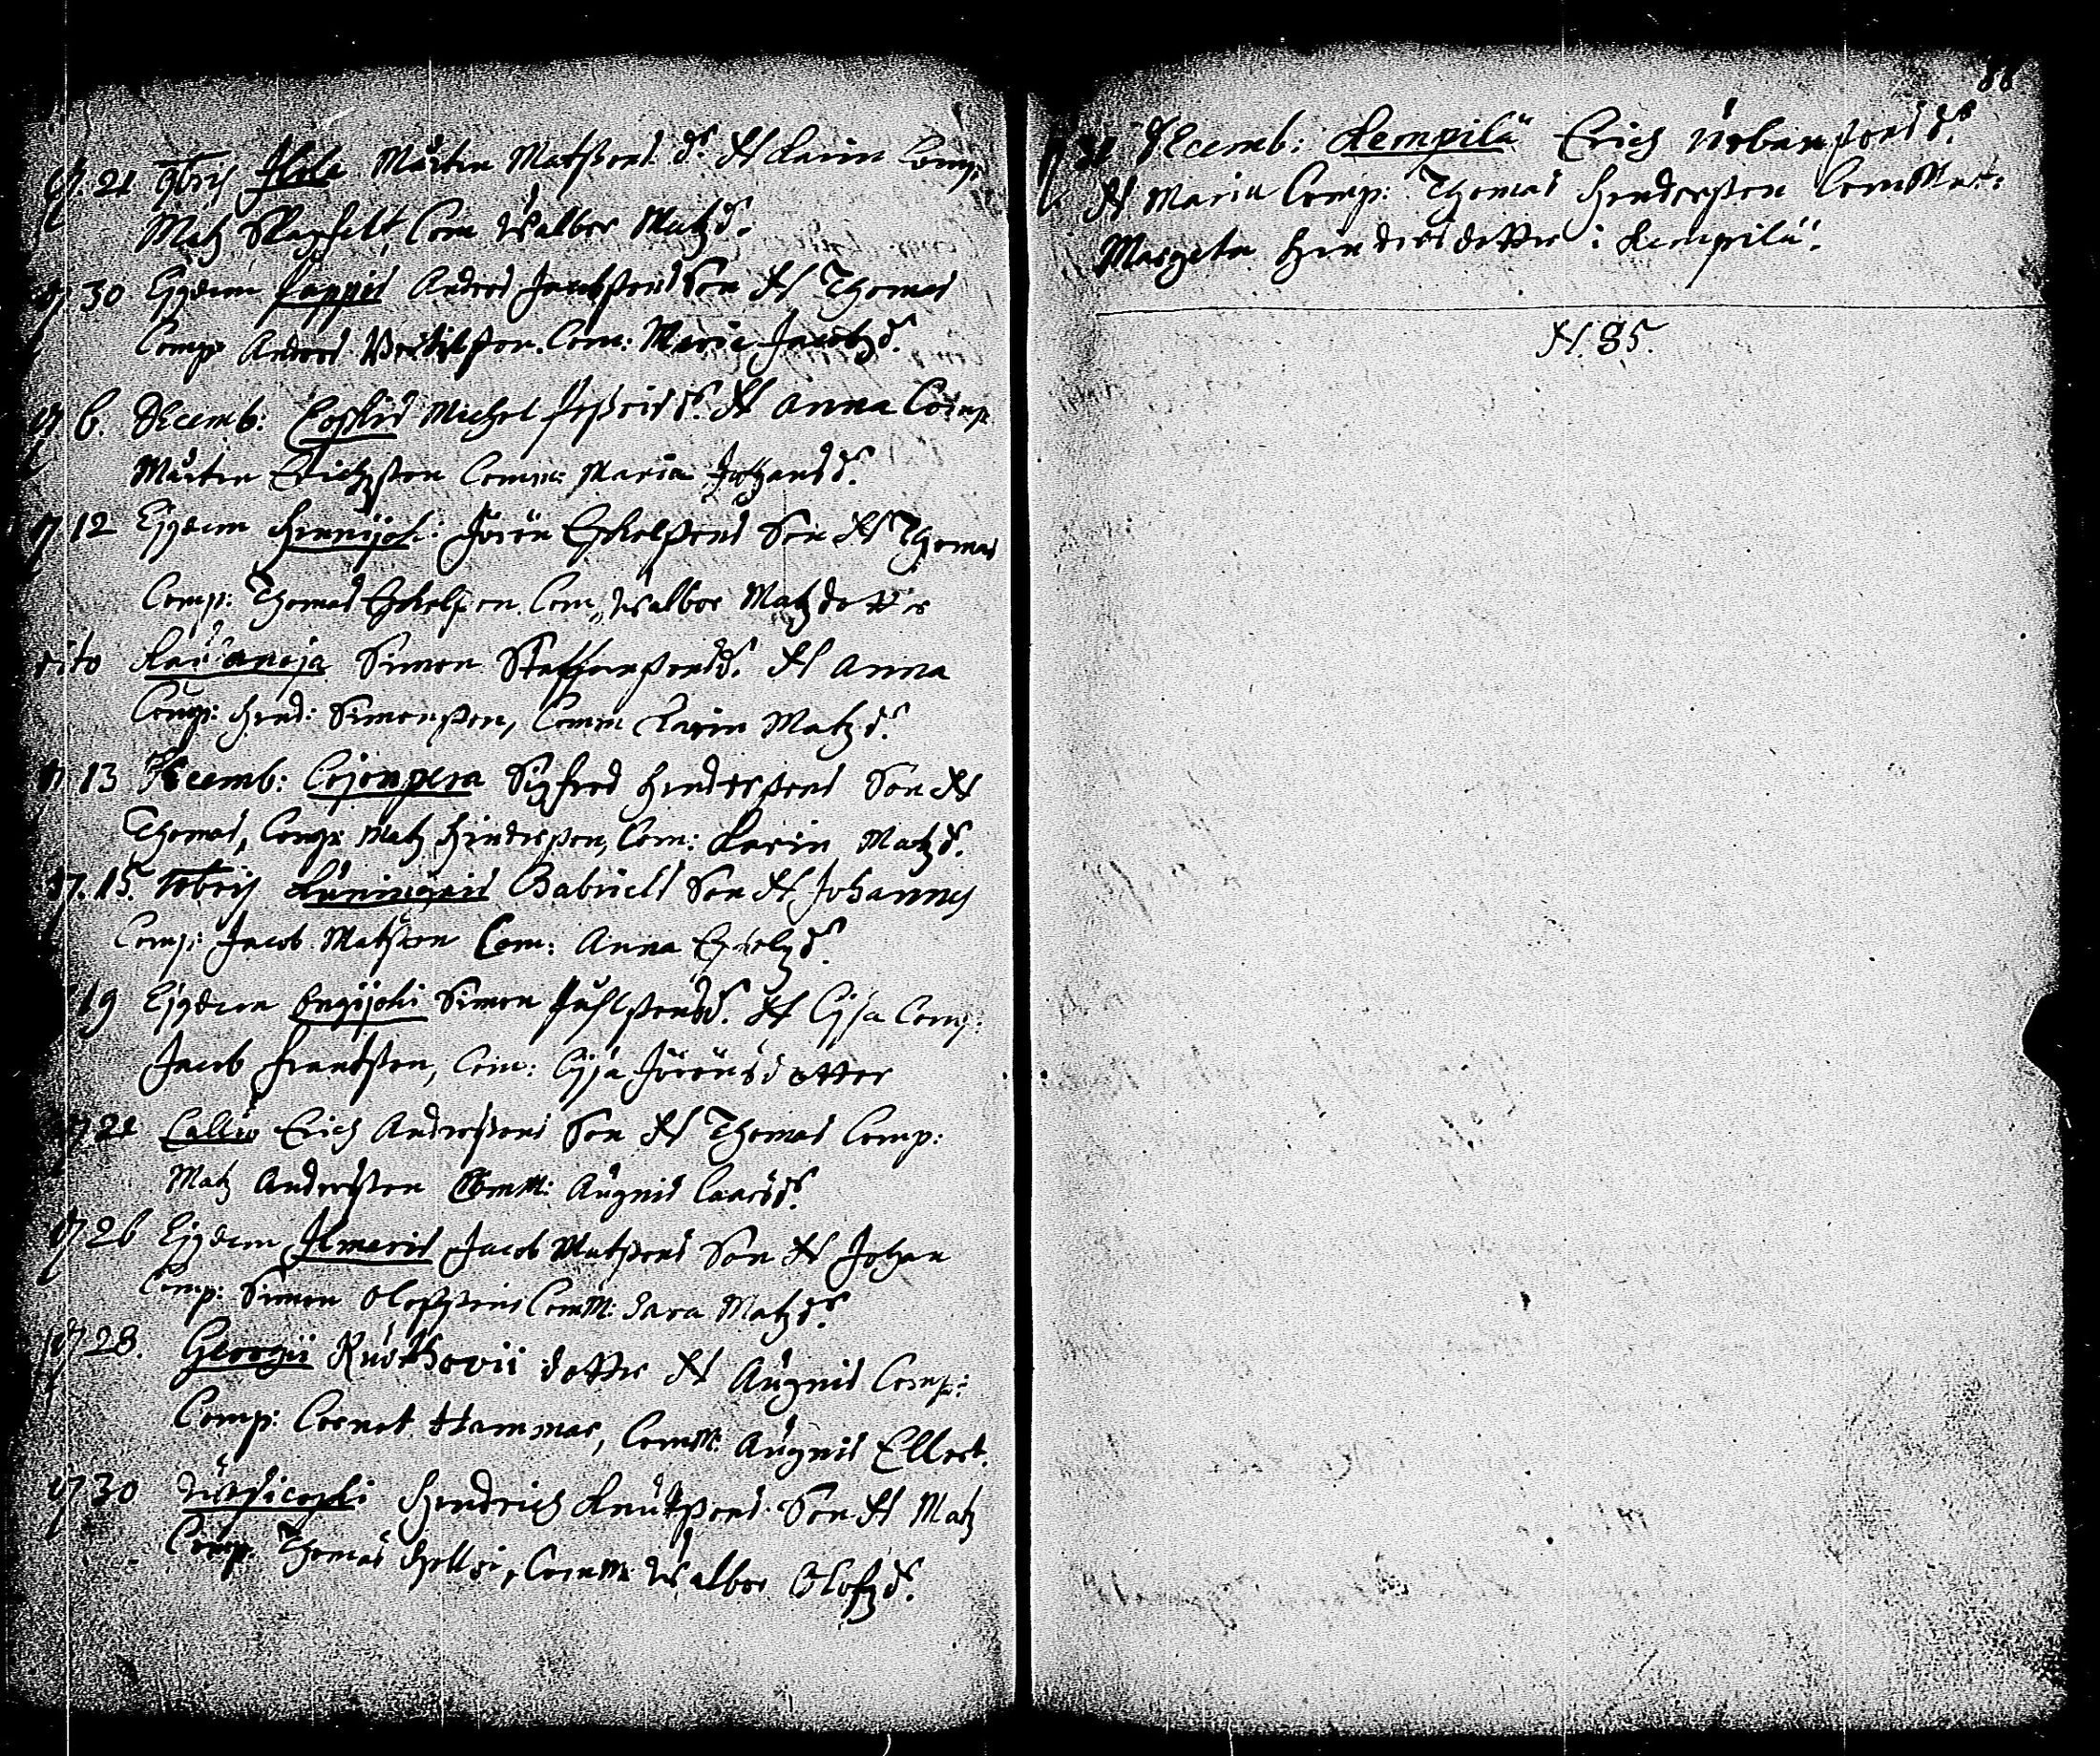 d 21 9bris Ilola Mårten Matssons d. N Karin Comp.
Matz Com Walbor Matzd.
d 30 Ejusdem Lappis Anders Jacobssons Son N Thomas
Comp Anders Bertilsson. Com: Maria Jacobzd.
d 6. Decemb: Coskis Michel d. N Anna Comp
Mårten Erichsson Comm: Maria Johansd.
d 12 Ejusdem Hennijoki: Jörən Eskelssons Son N Thomas
Comp: Thomas Eskelsson. Com, Walbor Matzdotter
dito Rauanoja Simon Staffanssonsd. N Anna
Comp: Hend: Simonsson, Comm Karin Matzd.
d 13 Decemb: Cojonpera Sigfred Henderssons Son N
Thomas, Comp: Matz Hindersson, Com: Karin Matzd.
d. 15. Xbris Gabriels Son N Johannes
Comp: Jacob Matsson Com: Anna Eskelzd.
19 Ejusdem Simon Påhlssonsd. N Lijsa Comp:
Jacob Frantsson, Com: Lijsa Jörönsdotter
d 21 Callis Erich Anderssons Son N Thomas Comp:
Matz Andersson Comm: Augnis Laarsd.
d 26 Ejusdem Ilmaris Jacob Matssons Son N Johan
Comp: Simon Olofssons Comm: Sara Matzd.
d 28. Georgii Kuuthovii dotter N Augnis Comp:
Comp: Cornet Hammar, Comm: Augnis Ellert.
d 30 Hendrich Knutssons Son N Matz
Comp. Thomas Comm: Walbor Olofzd.
88
d 31 Decemb: Kempilä Erich Urbanssons d.
N Maria Comp: Thomas Hendersson ComMat:
Margeta Hindersdotter i Kempilä.
N. 85.